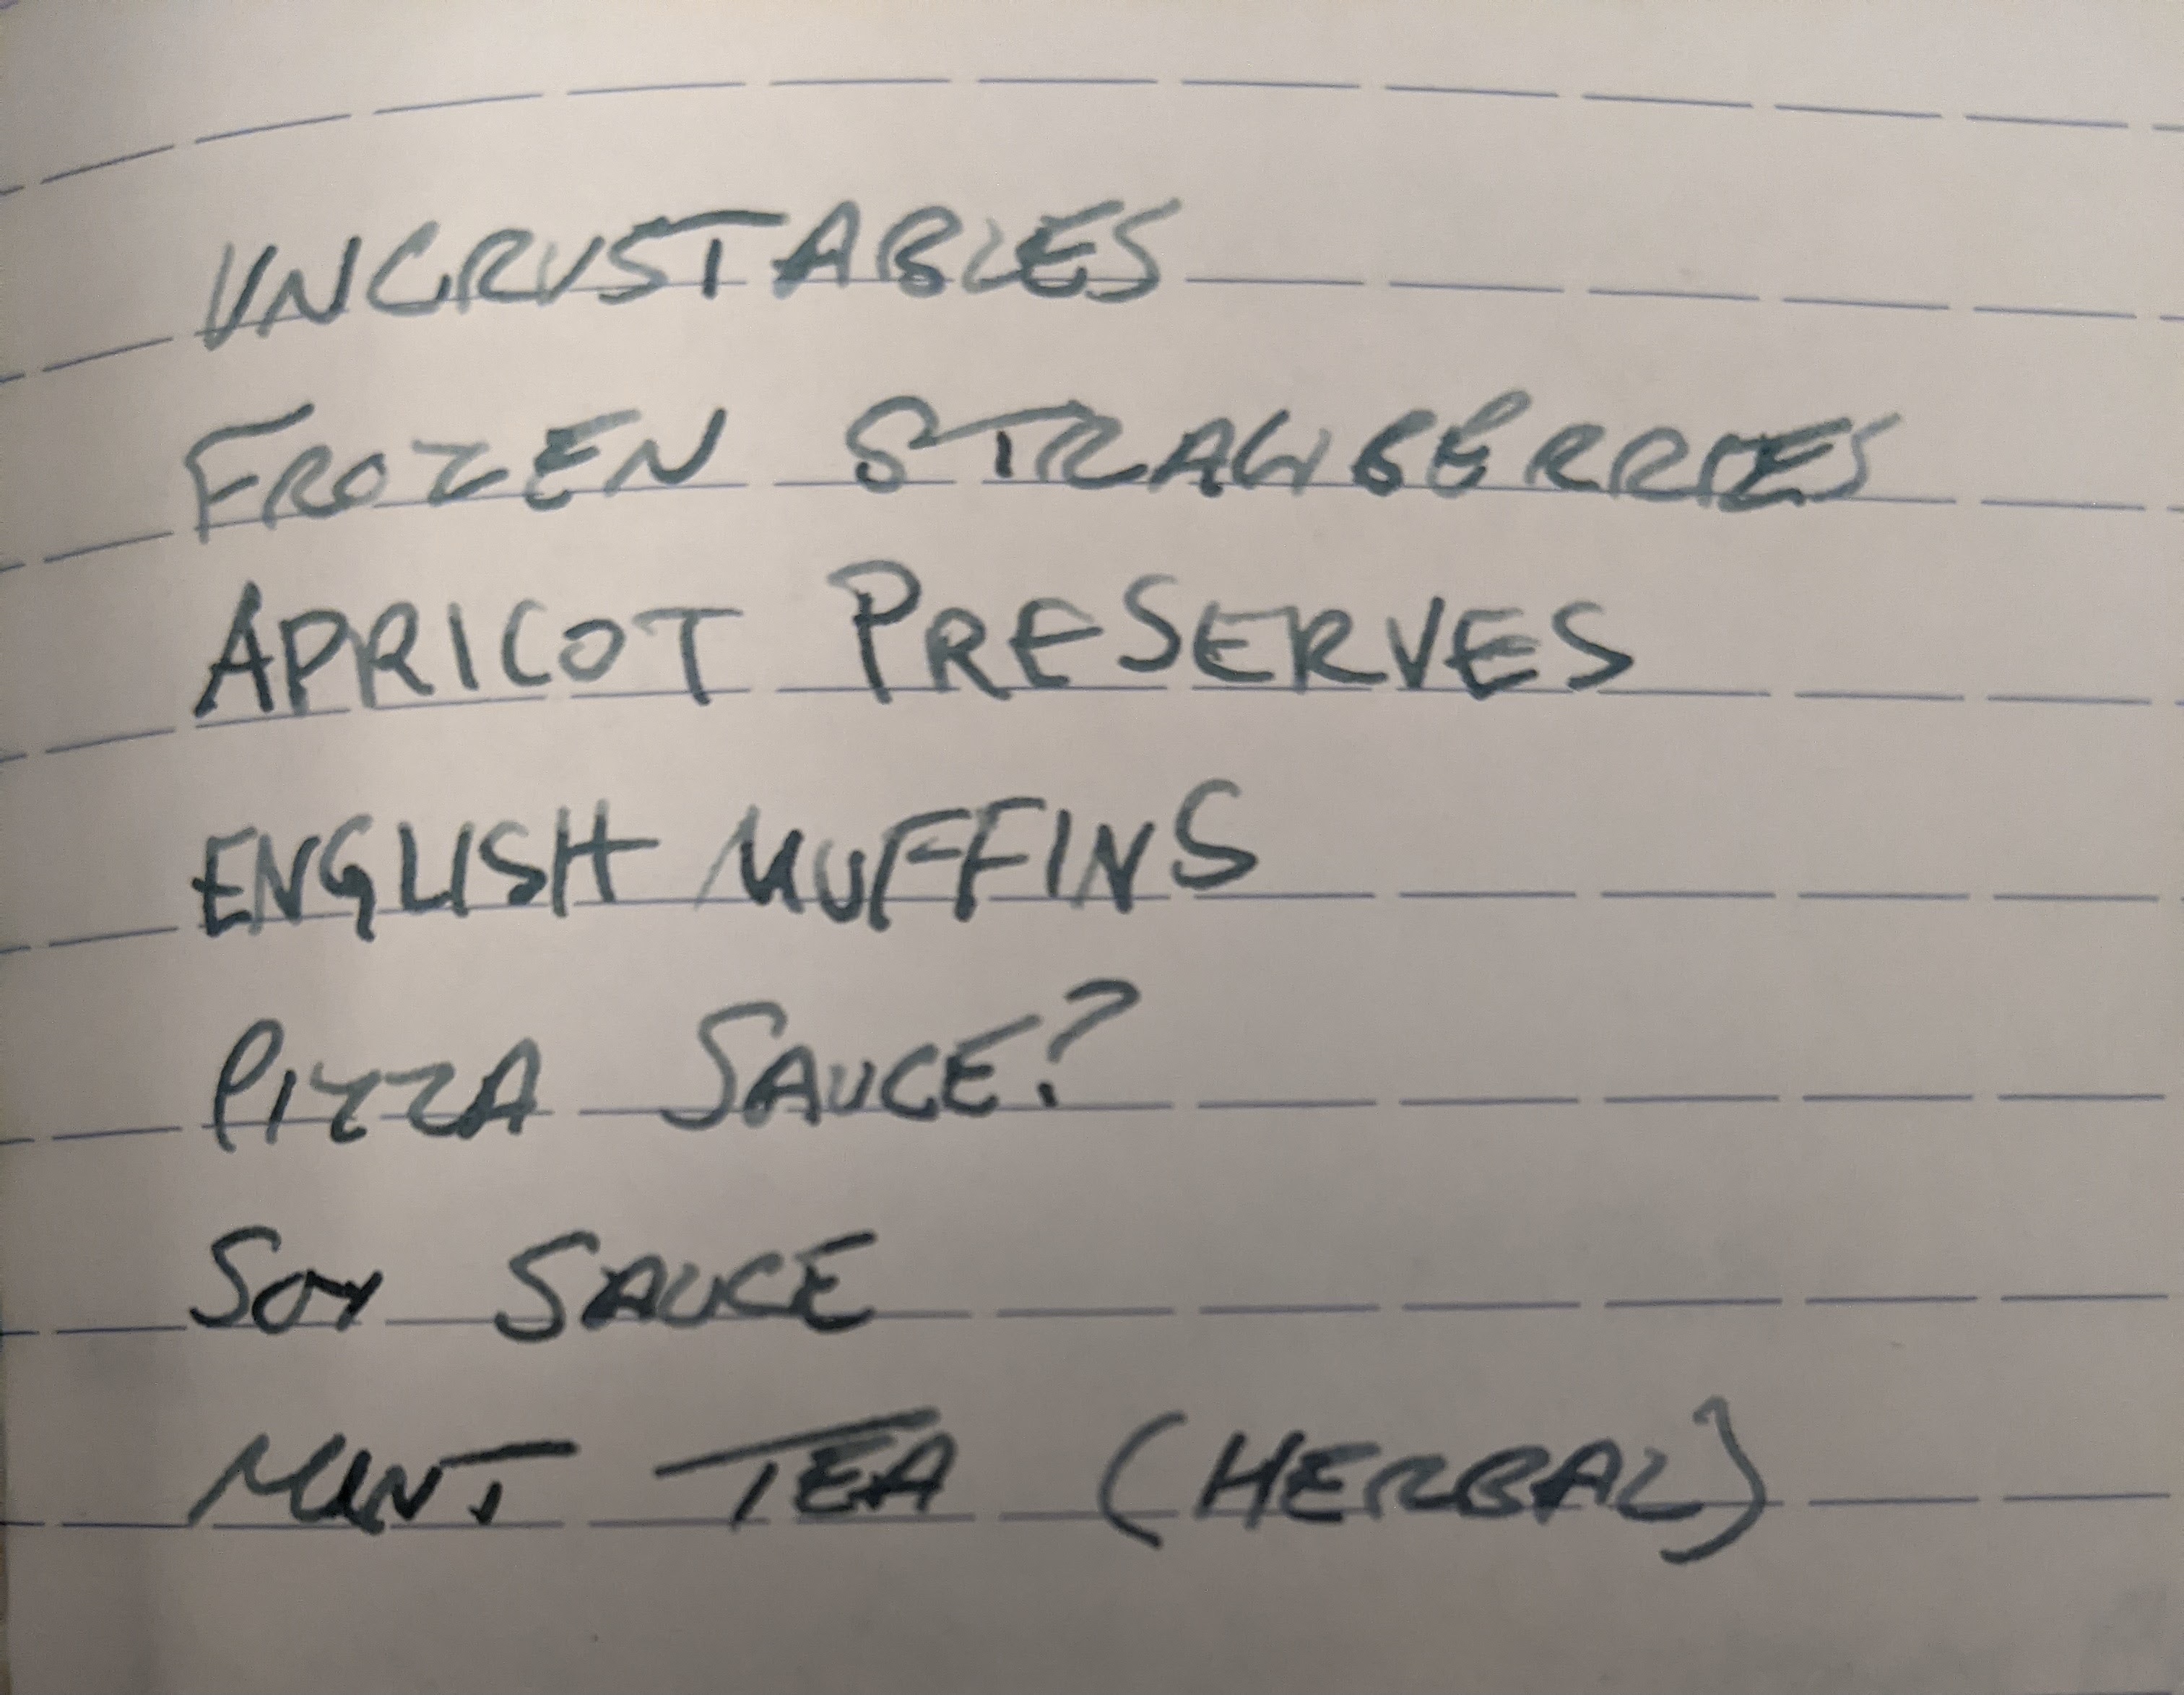 UNCRUSTABLES
FROZEN STRAWBERRIES
APRICOT PRESERVES
ENGLISH MUFFINS
PIZZA SAUCE?
SOY SAUCE
MINT TEA (HERBAL)